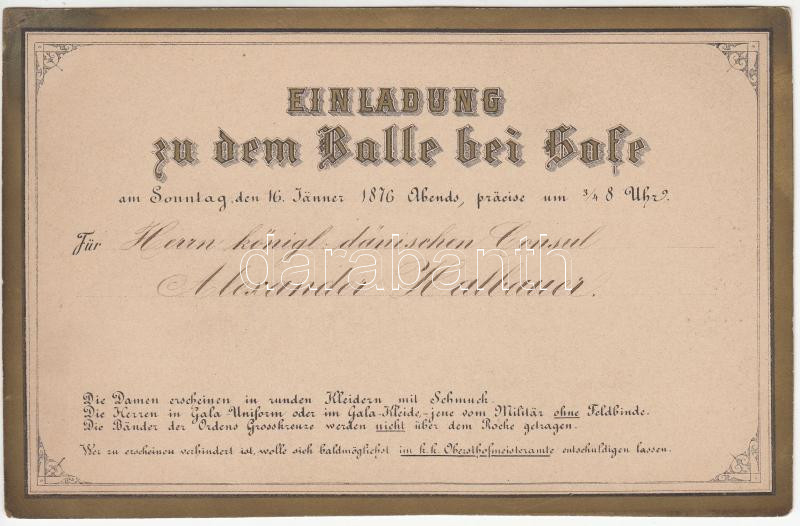 EINLADUNG
zu dem Balle bei Hofe
am Sonntag, den 16. Jänner 1876 Abends, präcise um 3/4 8 Uhr.
Für Herrn königl. dänischen Consul
Alexander Halbauer.
darabanth
Die Damen erscheinen in runden Kleidern mit Schmuck.
Die Herren in Gala Uniform oder im Gala-Kleide,-jene vom Militär ohne Feldbinde.
Die Bänder der Ordens Grosskreuze werden nicht über dem Rocke getragen.
Wer zu erscheinen verhindert ist, wolle sich baldmöglichst im k. k. Obersthofmeisteramte entschuldigen lassen.